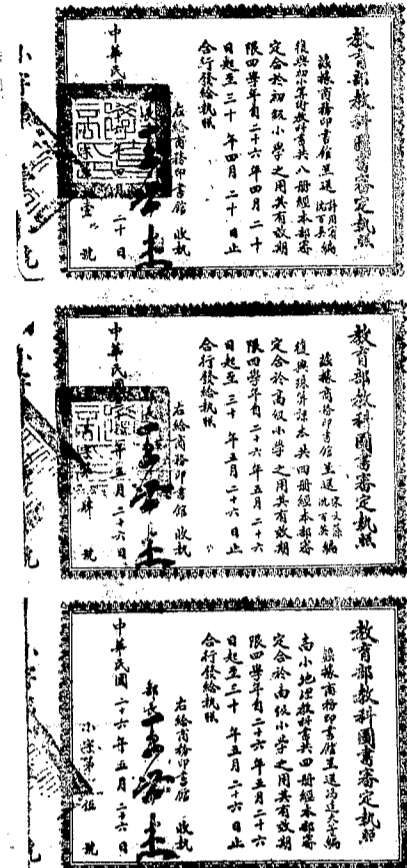 教育部教科圖書審定執照
茲據商務印書館呈送許用賓沈百英編
復興初小算術教科書共八冊經本部審
定合於初級小學之用其有效期
限四學年自二十六年四月二十
日起至三十年四月二十日止
合行發給執照
右給商務印書館 收執
中華民國 年四月二十日
教育部教科圖書審定執照
茲據商務印書館呈送宋文藻沈百英編
復興珠算課本共四冊經本部審
定合於高級小學之用其有效期
限四學年自二十六年五月二十六
日起至三十年五月二十六日止
合行發給執照
右給商務印書館 收執
中華民國 年五月二十六日
教育部教科圖書審定執照
茲據商務印書館呈送馮達夫等編
高小地理教科書共四冊經本部審
定合於高級小學之用其有效期
限四學年自二十六年五月二十六
日起至三十年五月二十六日止
合行發給執照
右給商務印書館 收執
部長
中華民國二十六年五月二十六日
小字第 伍 號